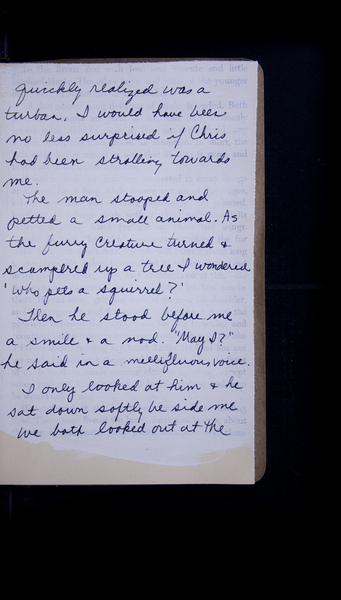 quickly realized was a
turban. I would have been
no less surprised if Chris
had been strolling towards
me.
The man stooped and
petted a small animal. As
the furry creative turned &
scampered up a tree I wondered
'who pets a squirrel?'
Then he stood before me
a smile & a nod. "May I?"
he said in a mellifluous voice.
I only looked at him & he
sat down softly be side me
We both looked out at the